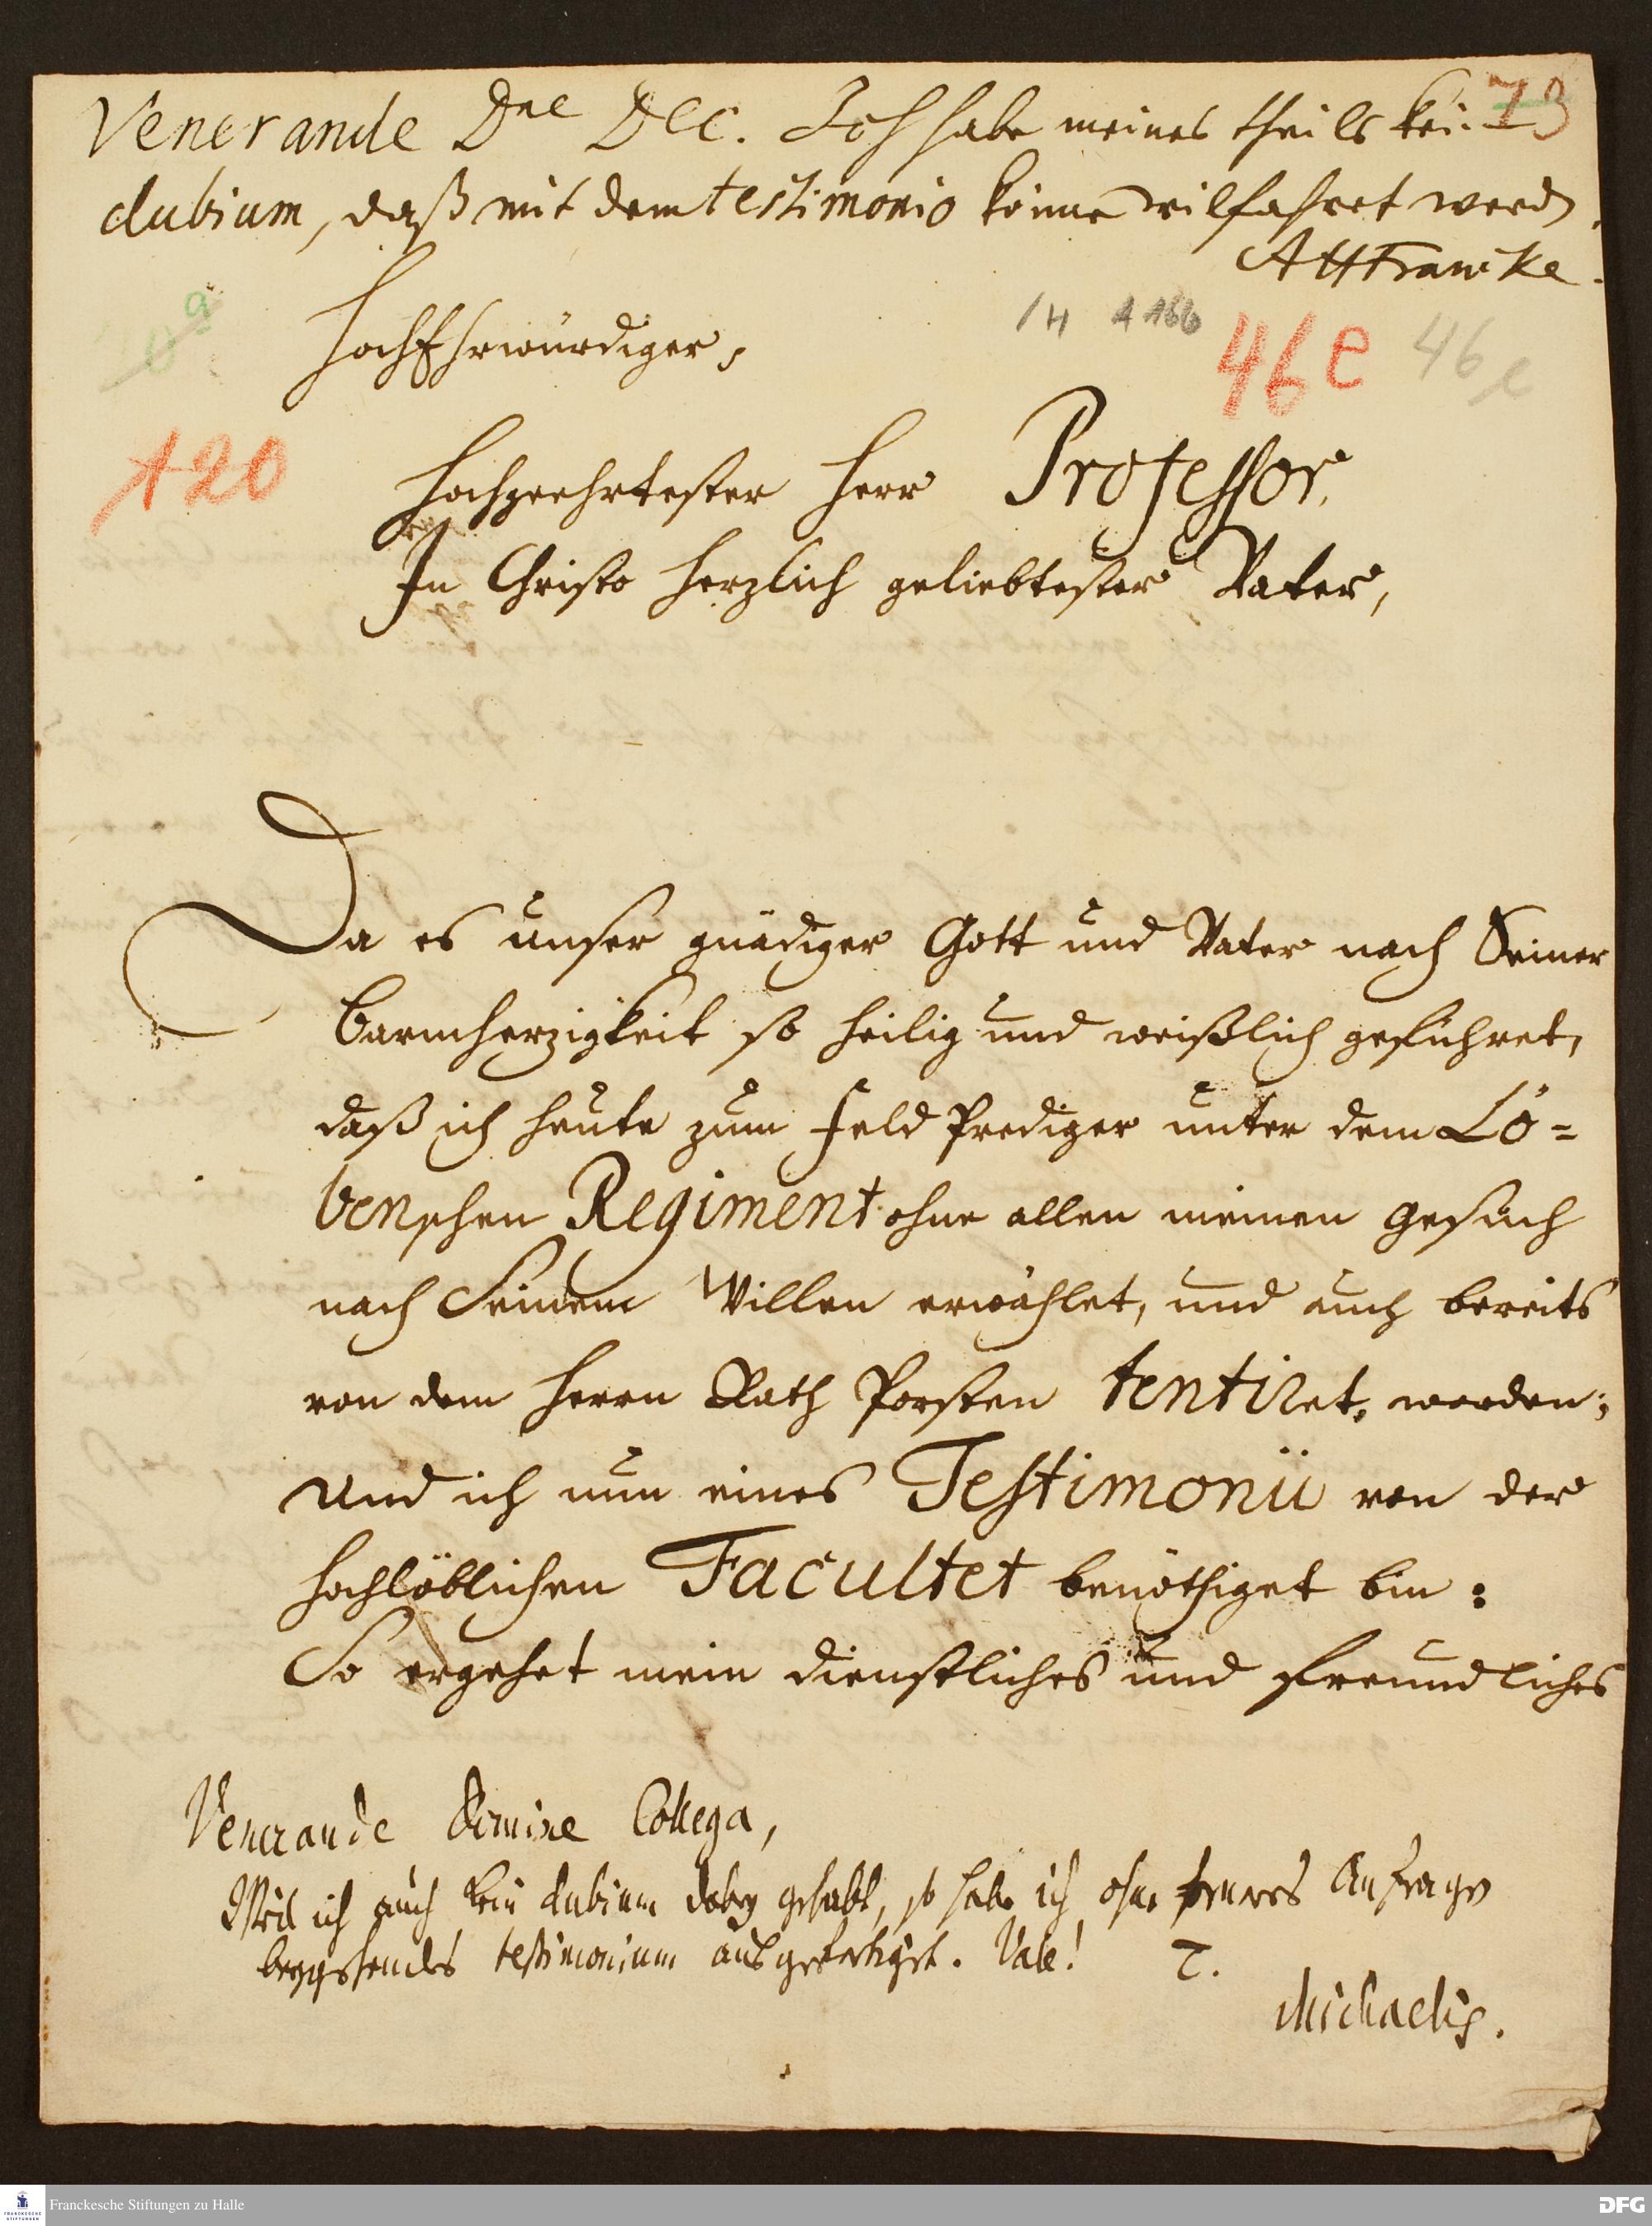 Venerande Dne Dec. Ich habe meines theils kein 73
dubium, daß mit dem testimonio könne wilfahret werden.
AHFrancke.
14 A 166
46e 46e
HochEhrwürdiger,
120
Hochgeehrtester Herr Professor,
In Christo hertzlich geliebtester Vater,
Da es unser gnädiger Gott und Vater nach Seiner
Barmhertzigkeit so heilig und weißlich geführet,
daß ich heute zum Feld Prediger unter dem Lö=
benschen Regiment ohne allen meinen Gesuch
nach Seinem Willen erwählet, und auch bereits
von dem Herrn Rath Porsten tentiret, worden;
Und ich nun eines Testimonii von der
Hochlöblichen Facultet benöthiget bin:
So ergehet mein dienstliches und freundliches
Venerande Domine Collega,
Weil ich auch kein dubium dabey gehabt, so habe ich ohne ferneres Anfragen
beygehendes testimonium ausgefertiget. Vale! T.
Michaelis.
Franckesche Stiftungen zu Halle
DFG